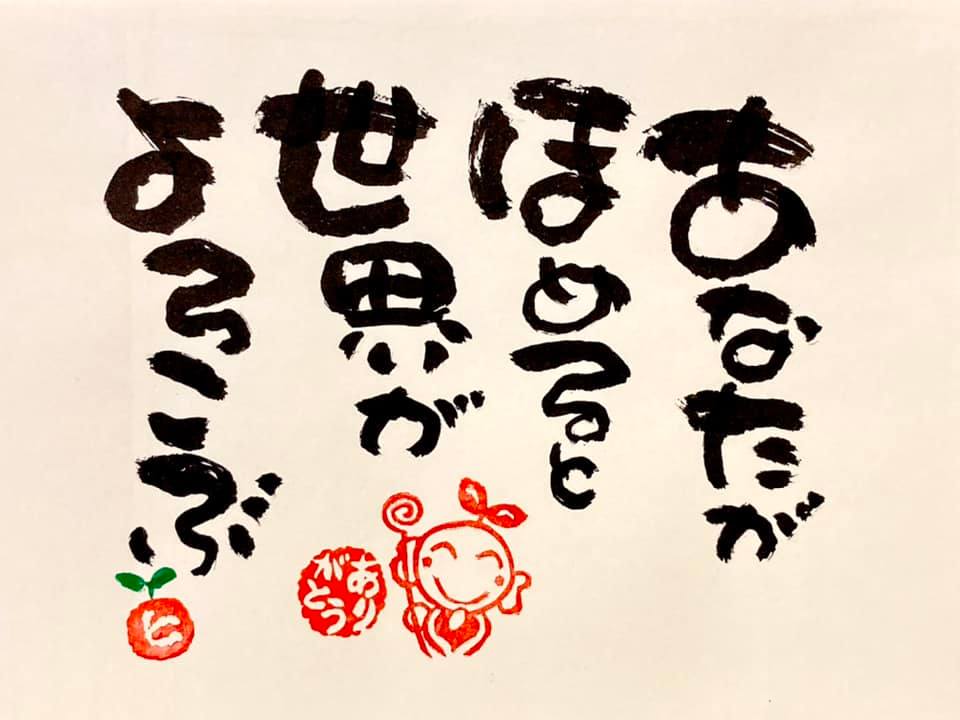 あなたが
ほめると
世界が
よろこぶ
ありがとう
ヒ